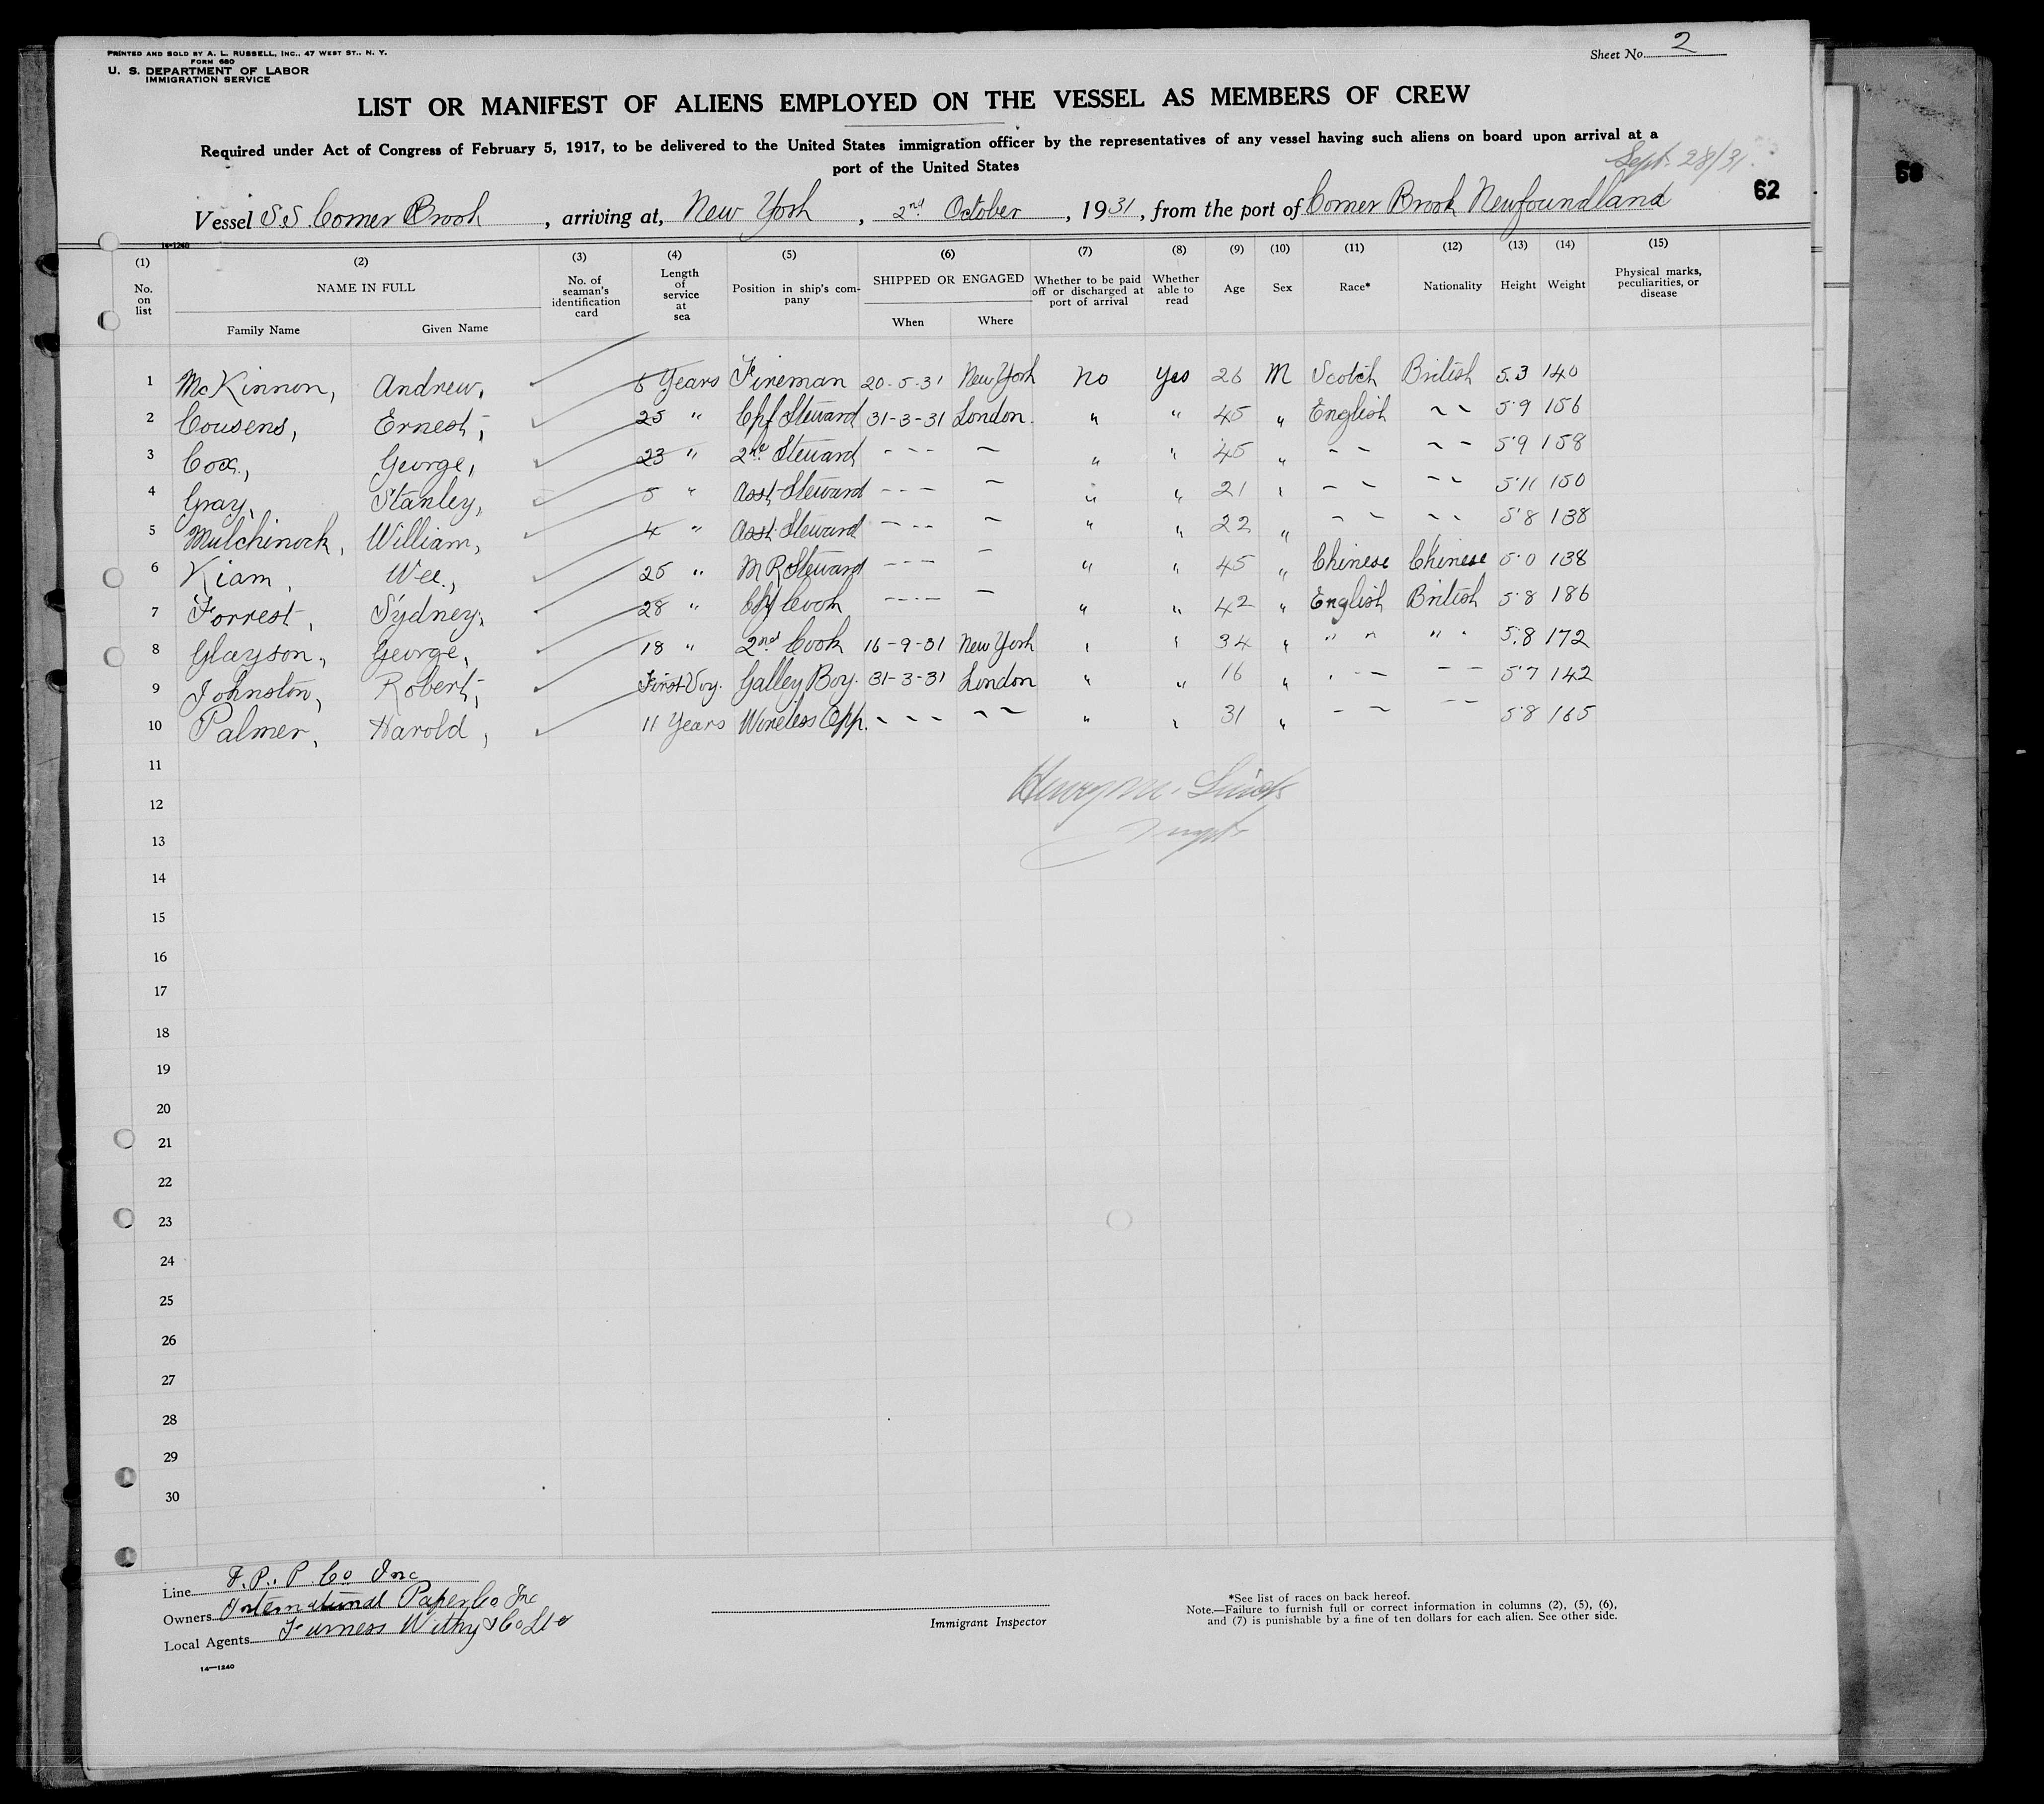 PRINTED AND SOLD BY A. L. RUSSELL, INC., 47 WEST ST., N. Y.
FORM 680
U. S. DEPARTMENT OF LABOR
IMMIGRATION SERVICE
Sheet No. 2
LIST OR MANIFEST OF ALIENS EMPLOYED ON THE VESSEL AS MEMBERS OF CREW
Required under Act of Congress of February 5, 1917, to be delivered to the United States immigration officer by the representatives of any vessel having such aliens on board upon arrival at a
port of the United States
Sept. 28/31
62
Vessel S.S. Corner Brook, arriving at, New York, 2nd October, 1931, from the port of Corner Brook Newfoundland
14-1240
(1) (2) (3) (4) (5) (6) (7) (8) (9) (10) (11) (12) (13) (14) (15)
No. on list NAME IN FULL Family Name Given Name No. of seaman's identification card Length of service at sea Position in ship's company SHIPPED OR ENGAGED When Where Whether to be paid off or discharged at port of arrival Whether able to read Age Sex Race* Nationality Height Weight Physical marks, peculiarities, or disease
1 McKinnon, Andrew, Years Fireman 20-5-31 New York No Yes 26 M Scotch British 5.3 140
2 Cousens, Ernest, 25 " Chf Steward 31-3-31 London. " " 45 " English ~ ~ 5'9 156
3 Cox, George, 23 " 2nd Steward - - - - " " 45 " - - - - 5'9 158
4 Gray, Stanley, 5 " Asst Steward - - - - " " 21 " - - - - 5'11 150
5 Mulchinock, William, 4 " Asst Steward - - - - " " 22 " - - - - 5'8 138
6 Kiam, Wee, 25 " M R Steward - - - - " " 45 " Chinese Chinese 5'0 138
7 Forrest, Sydney, 28 " Chf Cook - - - - " " 42 " English British 5'8 186
8 Glayson, George, 18 " 2nd Cook 16-9-31 New York " " 34 " " " " " 5'8 172
9 Johnston, Robert, First Voy. Galley Boy. 31-3-31 London " " 16 " - - - - 5'7 142
10 Palmer, Harold, 11 Years Wireless Opp. - - - - - " " 31 " - - - - 5'8 165
11
Henry M.
12
13
14
15
16
17
18
19
20
21
22
23
24
25
26
27
28
29
30
Line P. P. Co Inc
Owners International Paper Co Inc
Local Agents Furness Withy & Co Ltd
Immigrant Inspector
*See list of races on back hereof.
Note.—Failure to furnish full or correct information in columns (2), (5), (6),
and (7) is punishable by a fine of ten dollars for each alien. See other side.
14—1240